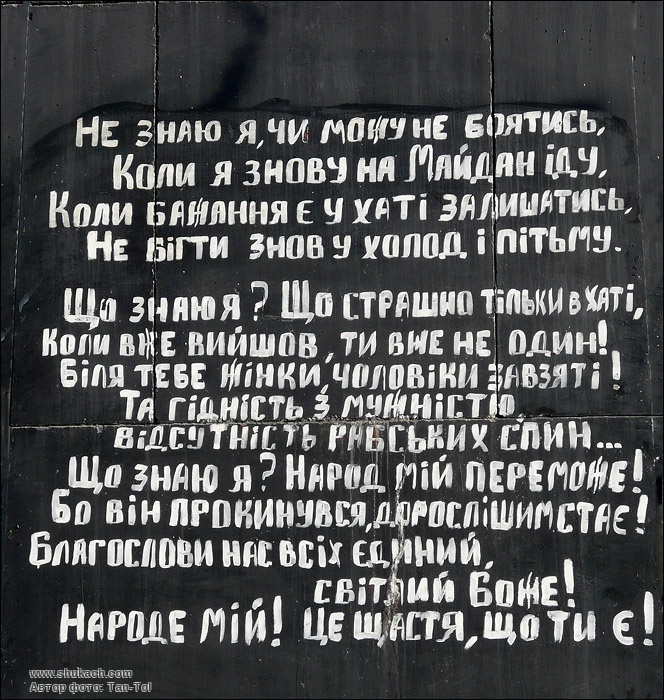 Не знаю я, чи можу не боятись,
Коли я знову на Майдан іду,
Коли бажання є у хаті залишатись,
Не бігти знов у холод і пітьму.
Що знаю я? Що страшно тільки в хаті,
Коли вже вийшов, ти вже не один!
Біля тебе жінки, чоловіки завзяті!
Та гідність з мужністю,
відсутність рабських спин...
Що знаю я? Народ мій переможе!
Бо він прокинувся, дорослішим стає!
Благослови нас всіх єдиний,
світлий Боже!
Народе мій! Це щастя, що ти є!
www.shukach.com
Автор фото: Tan-Tol